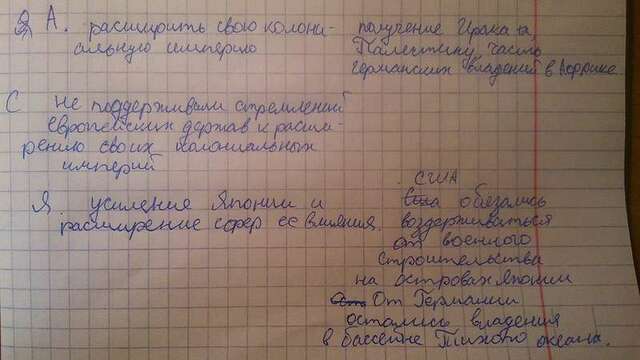 А. расширить свою колони-
альную империю
получение Ирака и,
Палестину, часть
германских владений в Африке.
С не поддерживали стремлений
европейских держав к расши-
рению своих колониальных
империй
Я. усиление Японии и
расширение сфер ее влияния.
США
обязались
воздерживаться
от военного
строительства
на островах Японии
От Германии
остались владения
в бассейне Тихого океана.